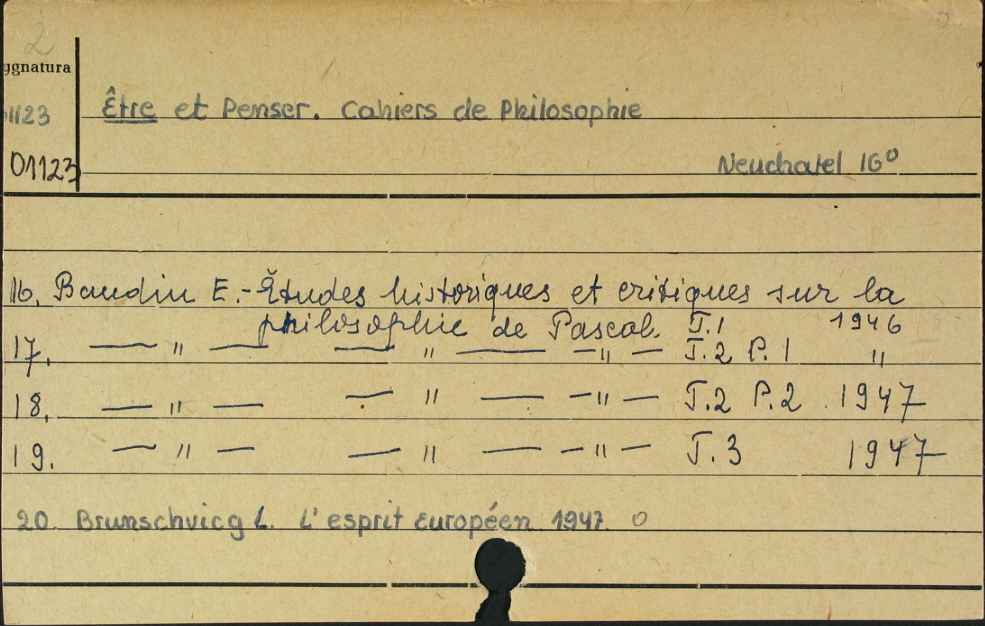 2
ygnatura
01123 Être et Penser. Cahiers de Philosophie
01123 Neuchatel 16°
16. Baudin E.- Études historiques et critiques sur la
philosophie de Pascal. T.1 1946
17. — " — — " — — " — T.2 P.1 "
18. — " — — " — — " — T.2 P.2 1947
19. — " — — " — — " — T.3 1947
20. Brunschvicg L. L'esprit Européen 1947. o